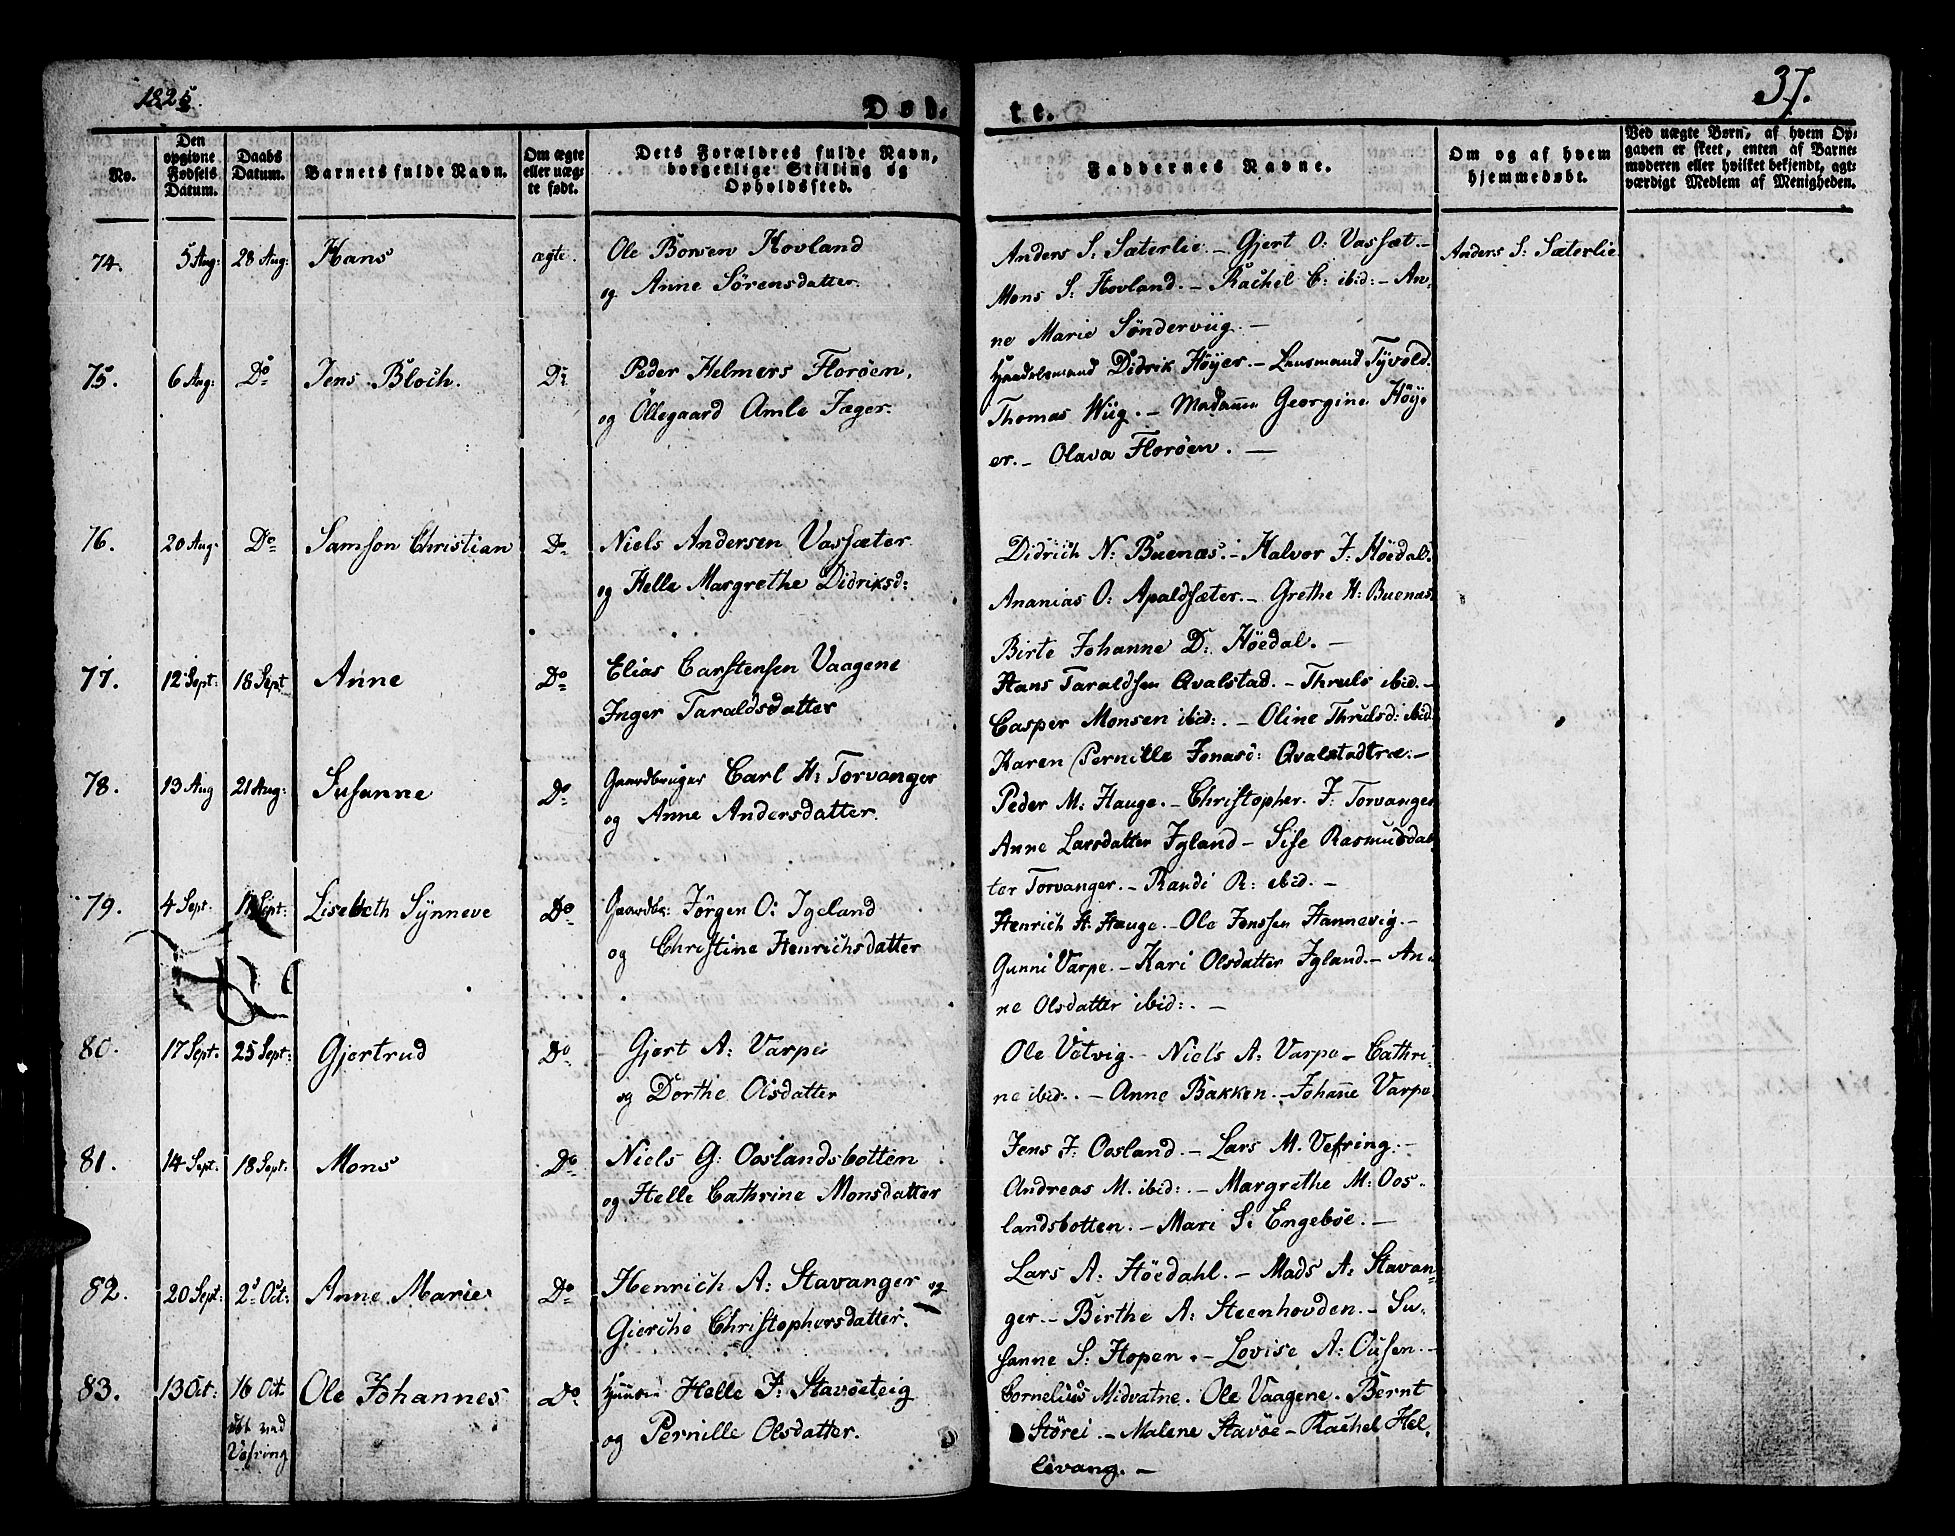 1825.
Døb-
te.
37.
No.
Den opgivne Fødsels Datum.
Daabs Datum.
Barnets fulde Navn.
Om ægte eller uægte født.
Dets Forældres fulde Navn, borgerlige Stilling og Opholdssted.
Faddernes Navne.
Om og af hvem hjemmedøbt.
Ved uægte Børn, af hvem Opgaven er skeet, enten af Barnemoderen eller hvilket bekjendt, agtværdigt Medlem af Menigheden.
74. 5 Aug: 28 Aug: Hans ægte. Ole Bowen Hovland
og Anne Sörensdatter.
Anders S: Sæterlie. – Gjert O: Vassæt. –
Mons S: Hovland. – Rachel C: ibid: – An-
ne Marie Sönderviig. –
Anders S: Sæterlie
75. 6 Aug: Do Jens Bloch. Do Peder Helmers Floröen,
og Ollegaard Amle Jæger.
Handelsmand Didrik Höyer. – Lensmand Tyvold.
Thomas Wiig. – Madame Georgine Höy-
er. – Olava Floröen. –
76. 20 Aug: Do Samson Christian Do Niels Andersen Vassæter
og Helle Margrethe Didriksd:
Didrich N: Buenæs. – Halvor J: Höedal.
Ananias O: Apaldsæter. – Grethe H: Buenæs.
Birte Johanne D: Höedal. –
77. 12 Sept: 18 Sept Anne Do Elias Carstensen Vaagene
Inger Taraldsdatter
Hans Taraldsen Qvalstad. – Thruls ibid. –
Casper Monsen ibid: – Oline Thrulsd: ibid:
Karen Pernille Jonasd: Qvalstadtræ. –
78. 13 Aug 21 Aug: Susanne Do Gaardbruger Carl H: Torvanger
og Anne Andersdatter.
Peder M: Hauge. – Christopher J: Torvanger
Anne Larsdatter Igland – Sise Rasmusdat
ter Torvanger. – Randi R: ibid. –
79. 4 Sept. 11 Sept: Lisebeth Synneve Do Gaardbr: Jörgen O: Igeland
og Christine Henrichsdatter
Henrich H: Hauge. – Ole Jenssen Hannevig. –
Gunni Varpe. – Kari Olsdatter Igland. – An-
ne Olsdatter ibid: –
80. 17 Sept: 25 Sept: Gjertrud Do Gjert A: Varpe
og Dorthe Olsdatter
Ole Vetvig. – Niels A: Varpe – Cathri-
ne ibid: – Anne Bakken. – Johane Varpe
81. 14 Sept. 18 Sept: Mons Do Niels G: Ooslandsbotten
og Helle Cathrine Monsdatter
Jens J: Oosland. – Lars M. Vefring. –
Andreas M. ibid: – Margrethe M: Oos-
landsbotten. – Mari S: Engeböe. –
82. 20 Sept: 2 Oct: Anne Marie Do Henrich A: Stavanger og
Gierche Christophersdatter.
Lars A: Höedahl. – Mads A: Stavan-
ger. – Birthe A: Steenhovden. – Su-
sanne S: Hopen. – Lovise A: Ousen. –
83. 13 Oct: 16 Oct. Ole Johannes Do Huusm: Helle J: Stavöeteig
ved
Vefring
og Pernille Olsdatter.
Cornelius Midvatne. Ole Vaagene. Bernt
Störei. – Malene Stavöe – Rachel Hel-
levang. –